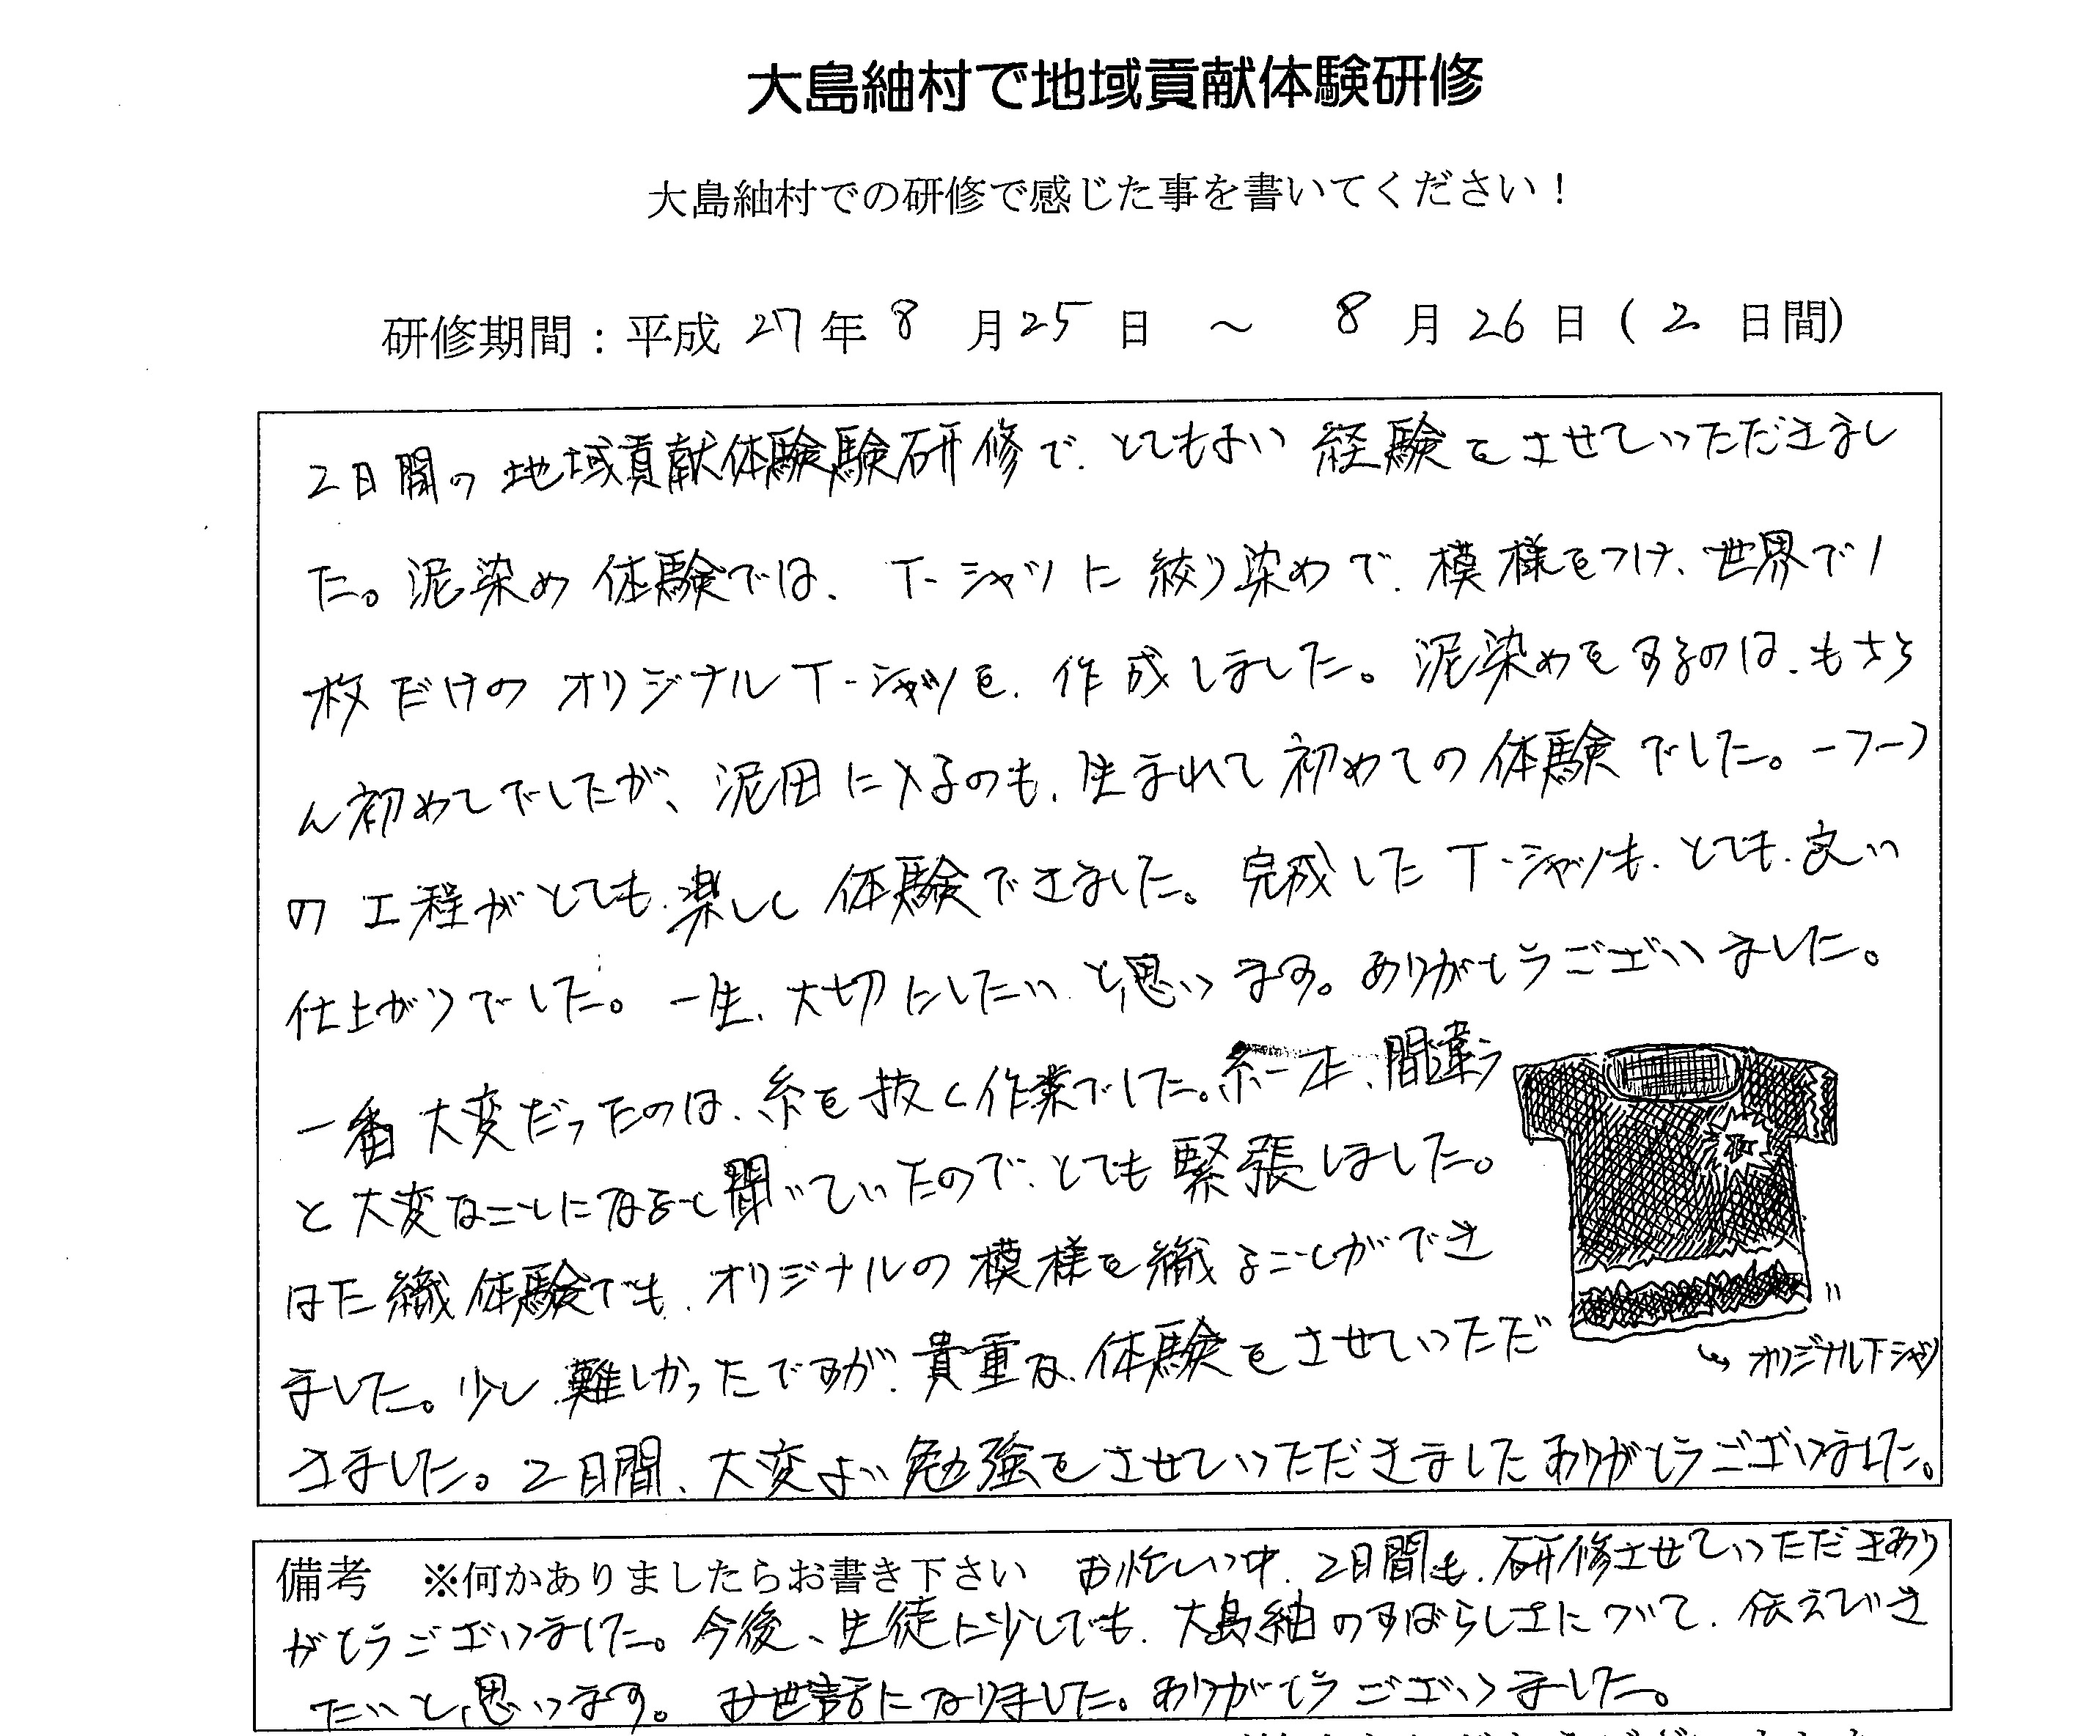 大島紬村で地域貢献体験研修
大島紬村での研修で感じた事を書いてください！
研修期間：平成 27 年 8 月 25 日 ～ 8 月 26 日（ 2 日間）
2日間の地域貢献体験験研修で、とてもよい経験をさせていただきまし
た。泥染め体験では、T-シャツに絞り染めで、模様をつけ、世界で1
枚だけのオリジナルT-シャツを、作成しました。泥染めをするのは、もちろ
ん初めてでしたが、泥田に入るのも、生まれて初めての体験でした。一つ一つ
の工程がとても、楽しく体験できました。完成したT-シャツも、とても、良い
仕上がりでした。一生、大切にしたいと思います。ありがとうございました。
一番大変だったのは、糸を抜く作業でした。糸一本、間違う
と大変なことになると聞いていたので、とても緊張しました。
はた織体験でも、オリジナルの模様を織ることができ
ました。少し、難しかったですが、貴重な、体験をさせていただ
きました。2日間、大変よい勉強をさせていただきましたありがとうございました。
オリジナルTシャツ
備考 ※何かありましたらお書き下さい お忙しい中、2日間も、研修させていただきあり
がとうございました。今後、生徒に少しでも、大島紬のすばらしさについて、伝えていき
たいと思います。お世話になりました。ありがとうございました。